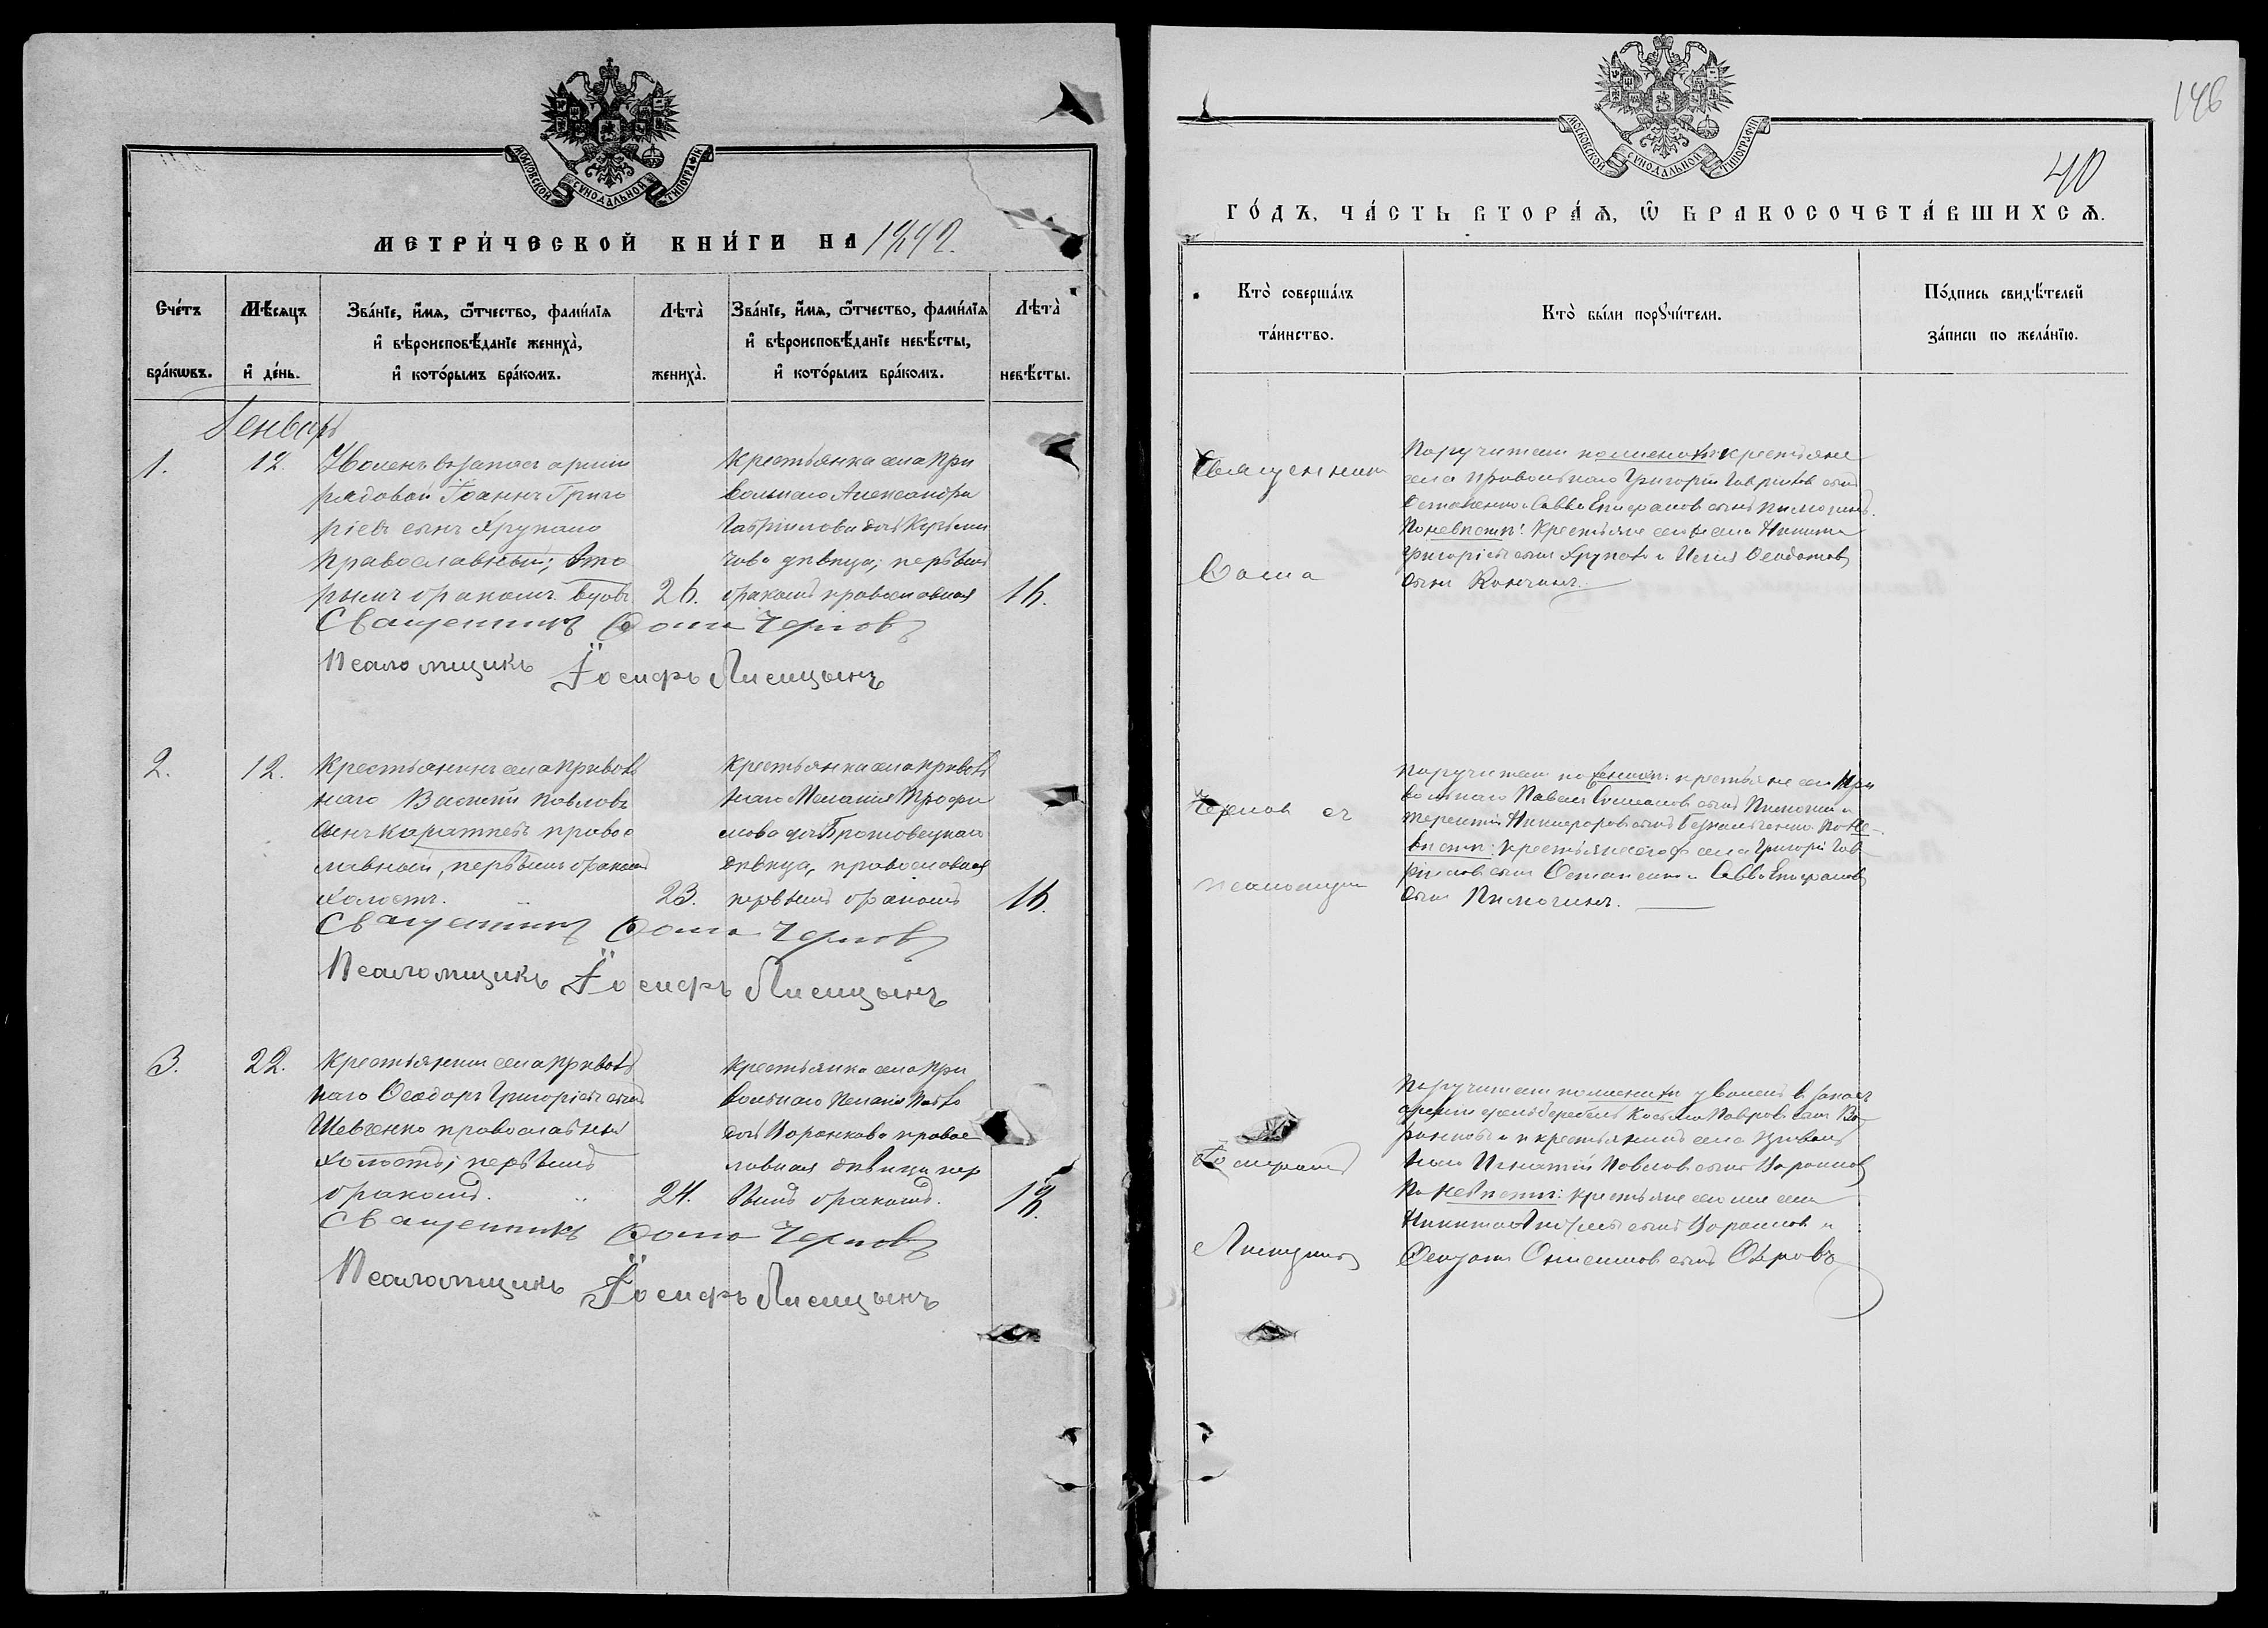 146
40
МОСКОВСКОЙ СѴНОДАЛЬНОЙ ТИПОГРАФІИ
МЕТРИ́ЧЕСКОЙ КНИ́ГИ НА 1892.
Сче́тъ бра́кѡвъ.
Мѣ́сяцъ и҆ де́нь.
Зва́нїе, и҆́мѧ, ѻ҆́тчество, фами́лїѧ
и҆ вѣроисповѣ́данїе жениха̀,
и҆ кото́рымъ бра́комъ.
Лѣта̀
жениха̀.
Зва́нїе, и҆́мѧ, ѻ҆́тчество, фами́лїѧ
и҆ вѣроисповѣ́данїе невѣ́сты,
и҆ кото́рымъ бра́комъ.
Лѣта̀
невѣ́сты.
Генварь
1.
12.
Уволенъ въ запасъ арміи
рядовой Іоаннъ Григо
ріевъ сынъ Хрупало
православный; вто
рымъ бракомъ. вдовъ
26.
Крестьянка села При
вольнаго Александра
Гавріилова дочь
дѣвица; первымъ
бракомъ православная
16.
Священникъ Ѳома Черновъ
Псаломщикъ Іосифъ Лисицынъ
2.
12.
Крестьянинъ села Приволь
наго Василій Павловъ
сынъ правос
лавный, первымъ бракомъ
холостъ.
23.
Крестьянка села Приволь
наго Меланія Трофи
мова дочь
дѣвица, православная
первымъ бракомъ
16.
Священникъ Ѳома Черновъ
Псаломщикъ Іосифъ Лисицынъ
3.
22.
Крестьянинъ села Приволь
наго Ѳеодоръ Григорьевъ сынъ
Шевченко православный
холостъ; первымъ
бракомъ.
24.
Крестьянка села При
вольнаго
дочь Воронкова правос
лавная дѣвица пер
вымъ бракомъ.
18.
Священникъ Ѳома Черновъ
Псаломщикъ Іосифъ Лисицынъ
МОСКОВСКОЙ СѴНОДАЛЬНОЙ ТИПОГРАФІИ
ГО́ДЪ, ЧА́СТЬ ВТОРА́Ѧ, Ѿ БРАКОСОЧЕТА́ВШИХСѦ.
Кто̀ соверша́лъ
та́инство.
Кто̀ бы́ли порꙋчи́тели.
По́дпись свидѣ́телей
за́писи по жела́нїю.
Священникъ
Ѳома
Черновъ съ
псаломщик
Іосифомъ
Лисицынъ
Поручители по женихѣ: крестьяне
села Привольнаго Григорій Гавріиловъ сынъ
Остапенко и Савва Епифановъ сынъ
По невѣстѣ: Крестьяне села Никита
Григорьевъ сынъ Хрупало и Ѳеодотовъ
сынъ
Поручители по женихѣ: крестьяне села При
вольнаго Павелъ сынъ и
Терентій Никифоровъ сынъ По не
вѣстѣ: крестьяне села Григорій Гав
ріиловъ сынъ Остапенко и Савва Епифановъ
сынъ
Поручители по женихѣ уволенъ въ запасъ
арміи фельдфебель сынъ Во
ронковъ и крестьянинъ села Приволь
наго Игнатій Павловъ сынъ Воронковъ
По невѣстѣ: крестьяне села
Никита сынъ Воронковъ и
сынъ